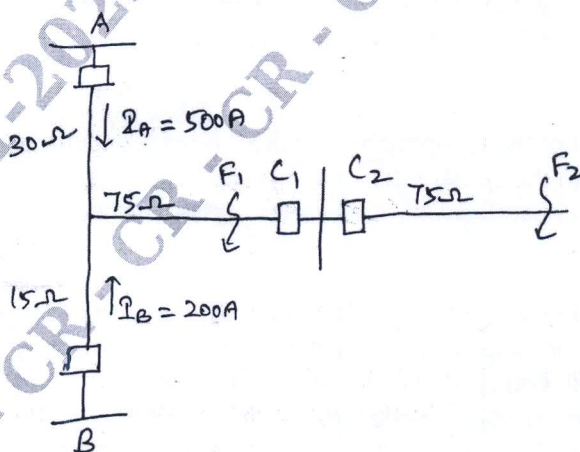 A
30Ω
I_A = 500A
75Ω
F₁
C₁
C₂
75Ω
F₂
15Ω
I_B = 200A
B
-202
- CR - CR - C
- CR - CR -